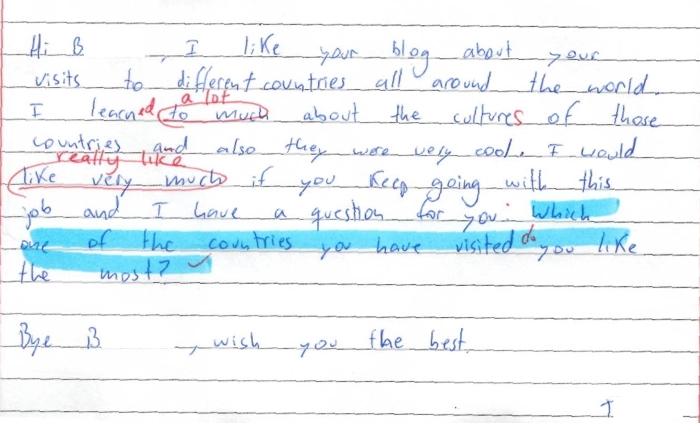 Hi B , I like your blog about your
visits to different countries all around the world.
a lot
I learned to much about the cultures of those
countries and also they were very cool. I would
really like
like very much if you keep going with this
job and I have a question for you: Which
one of the countries you have visited do you like
the most?
Bye B , wish you the best.